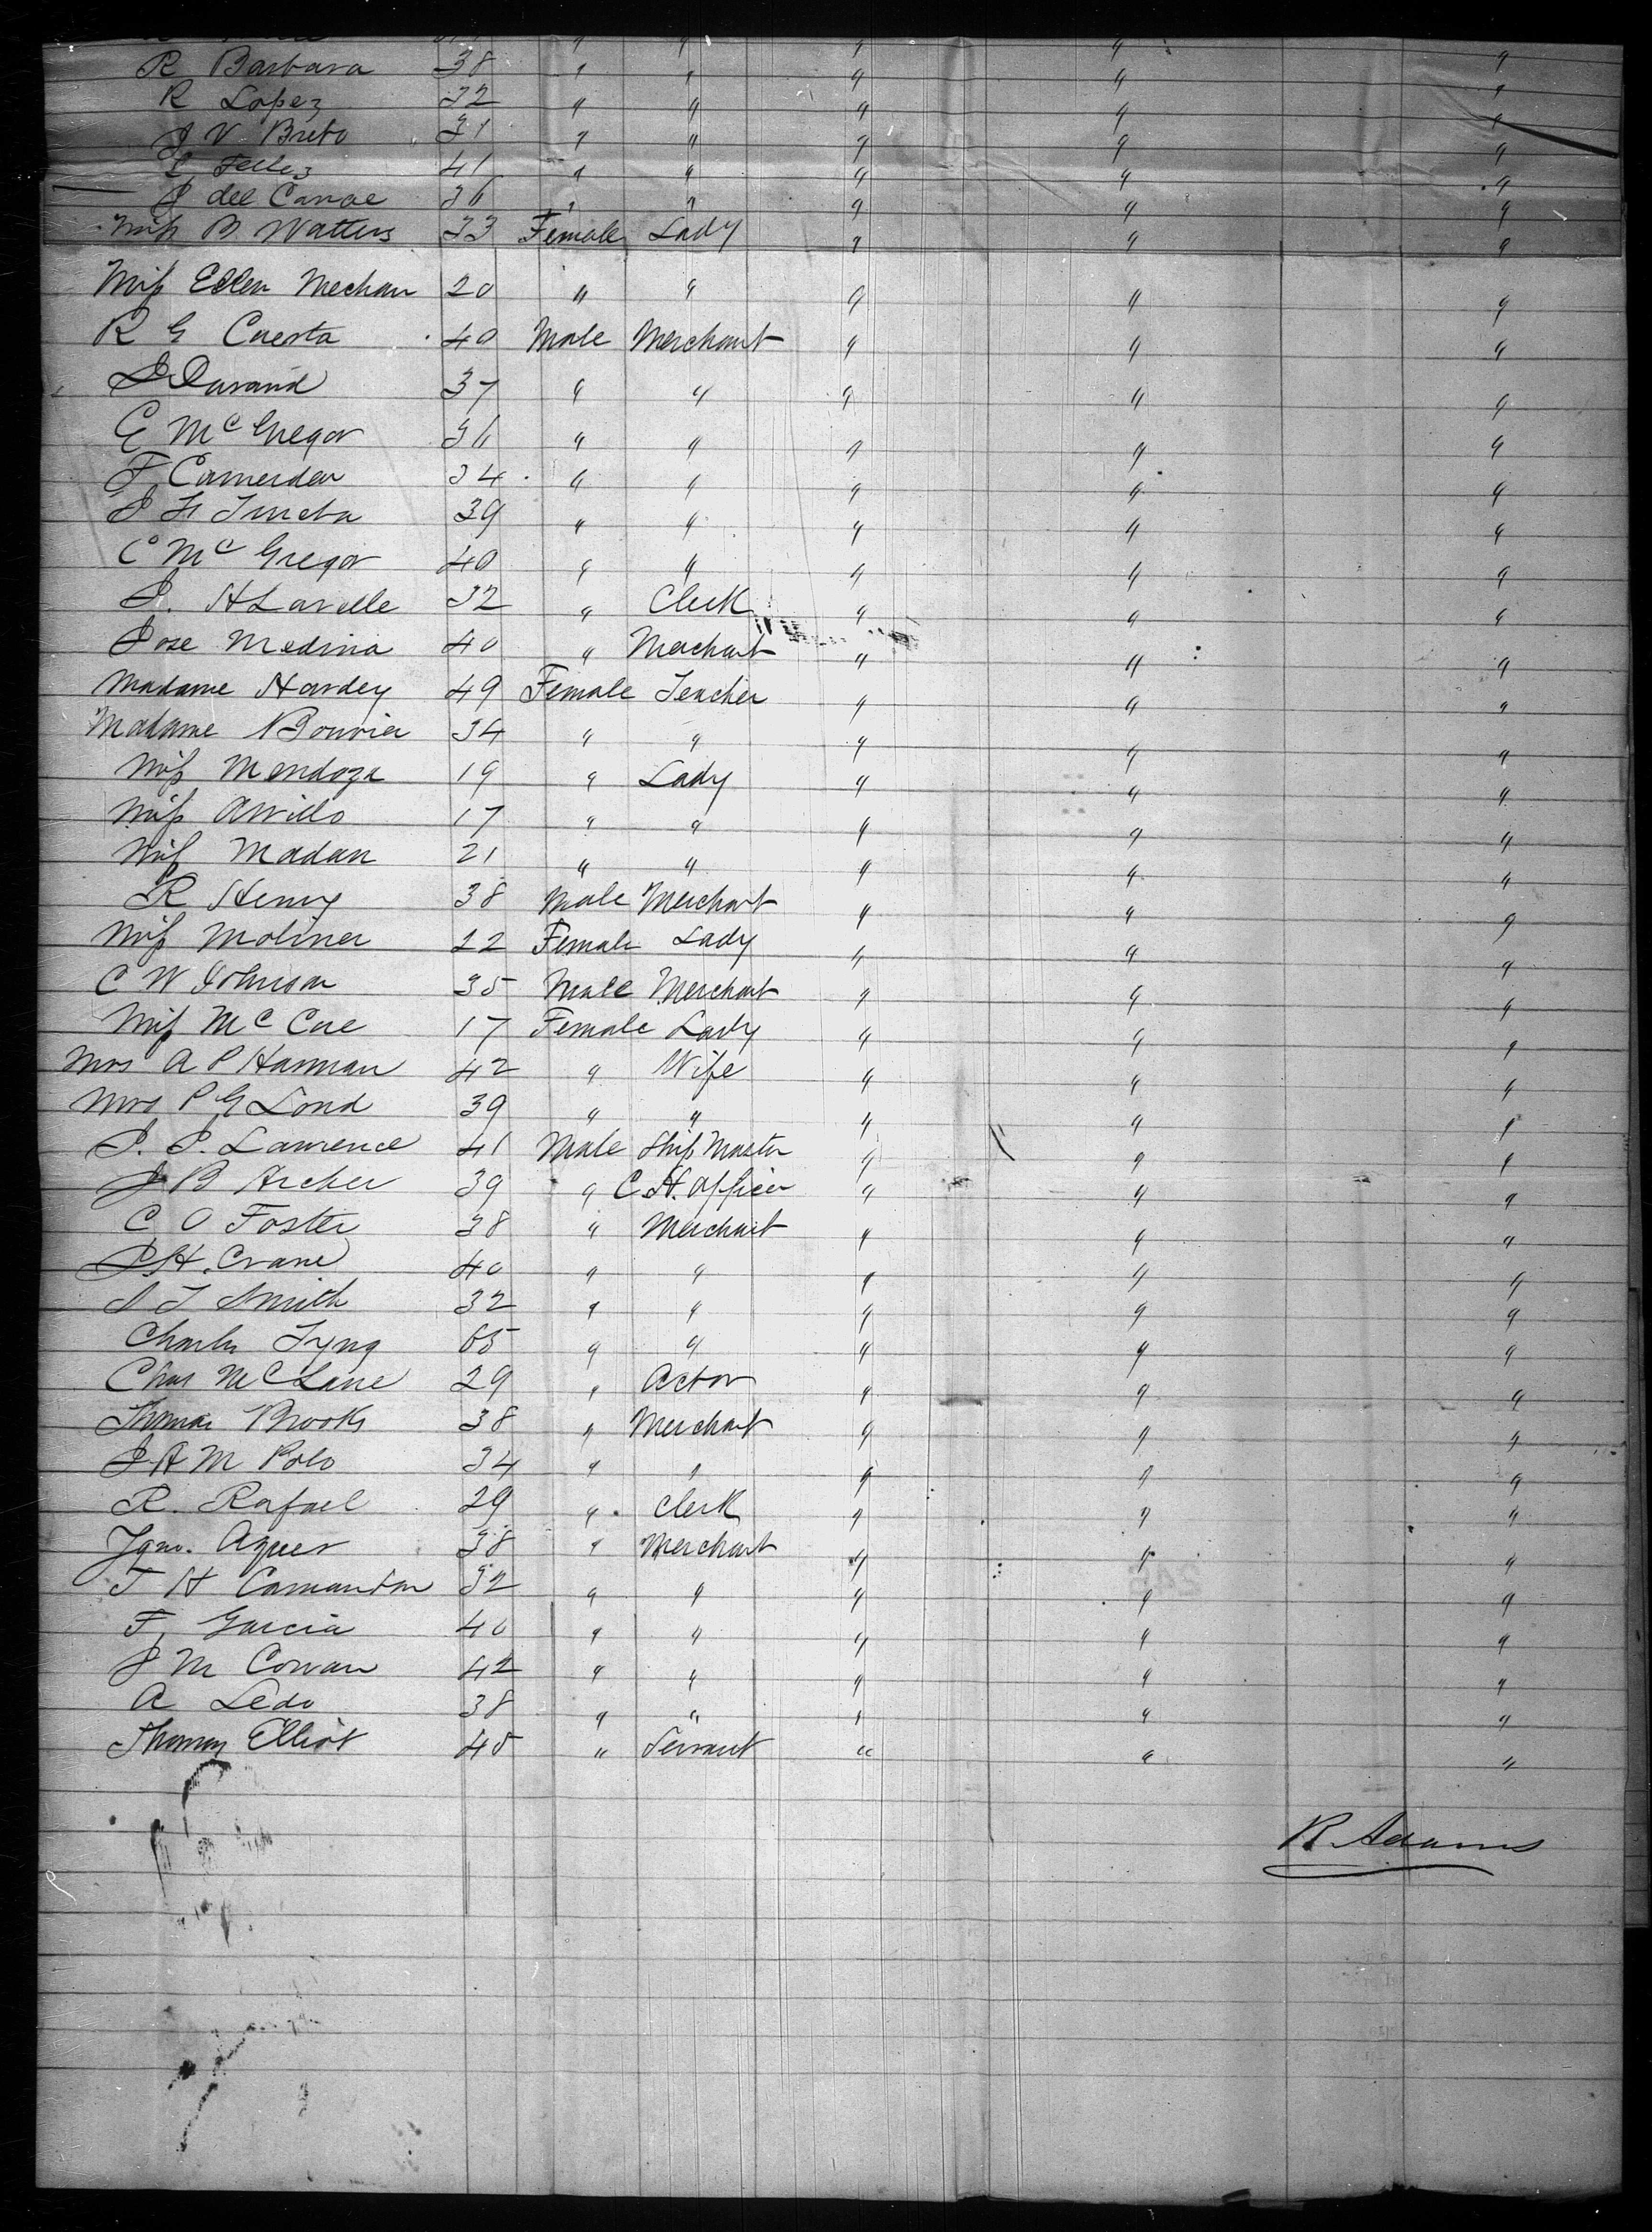 R Barbara 38 " " " " "
R Lopez 32 " " " " "
J V Brito 31 " " " " "
Telles 41 " " " " "
J del 36 " " " " "
Miss B. Watters 33 Female Lady " " "
Miss Ellen Mechan 20 " " " " "
R G Cuesta 40 Male Merchant " " "
J Durand 37 " " " " "
E McGregor 36 " " " " "
F Camerden 34 " " " " "
J F 39 " " " " "
C McGregor 40 " " " " "
J. H Lavelle 32 " Clerk " " "
Jose Medina 40 " Merchant " " "
Madame Hardey 49 Female Teacher " " "
Madame Bouvier 34 " " " " "
Miss Mendoza 19 " Lady " " "
Miss 17 " " " " "
Miss Madan 21 " " " " "
R Henry 38 Male Merchant " " "
Miss Moliner 22 Female Lady " " "
C W Johnson 35 Male Merchant " " "
Miss McCue 17 Female Lady " " "
Mrs A P Harman 42 " Wife " " "
Mrs P G Lond 39 " " " " "
J. P. Lawrence 41 Male Ship Master " " "
J B Archer 39 " C. H. Officer " " "
C O Foster 38 " Merchant " " "
J. H. Crane 40 " " " " "
S T Smith 32 " " " " "
Charles Tyng 65 " " " " "
Chas McLane 29 " Actor " " "
Thomas Brooks 38 " Merchant " " "
J A M Polo 34 " " " " "
R. Rafael 29 " Clerk " " "
Ygno. 38 " Merchant " " "
T H 32 " " " " "
F, Garcia 40 " " " " "
J M Cowan 42 " " " " "
A Ledo 38 " " " " "
Thomas Elliot 45 " Servant " " "
R. Adams